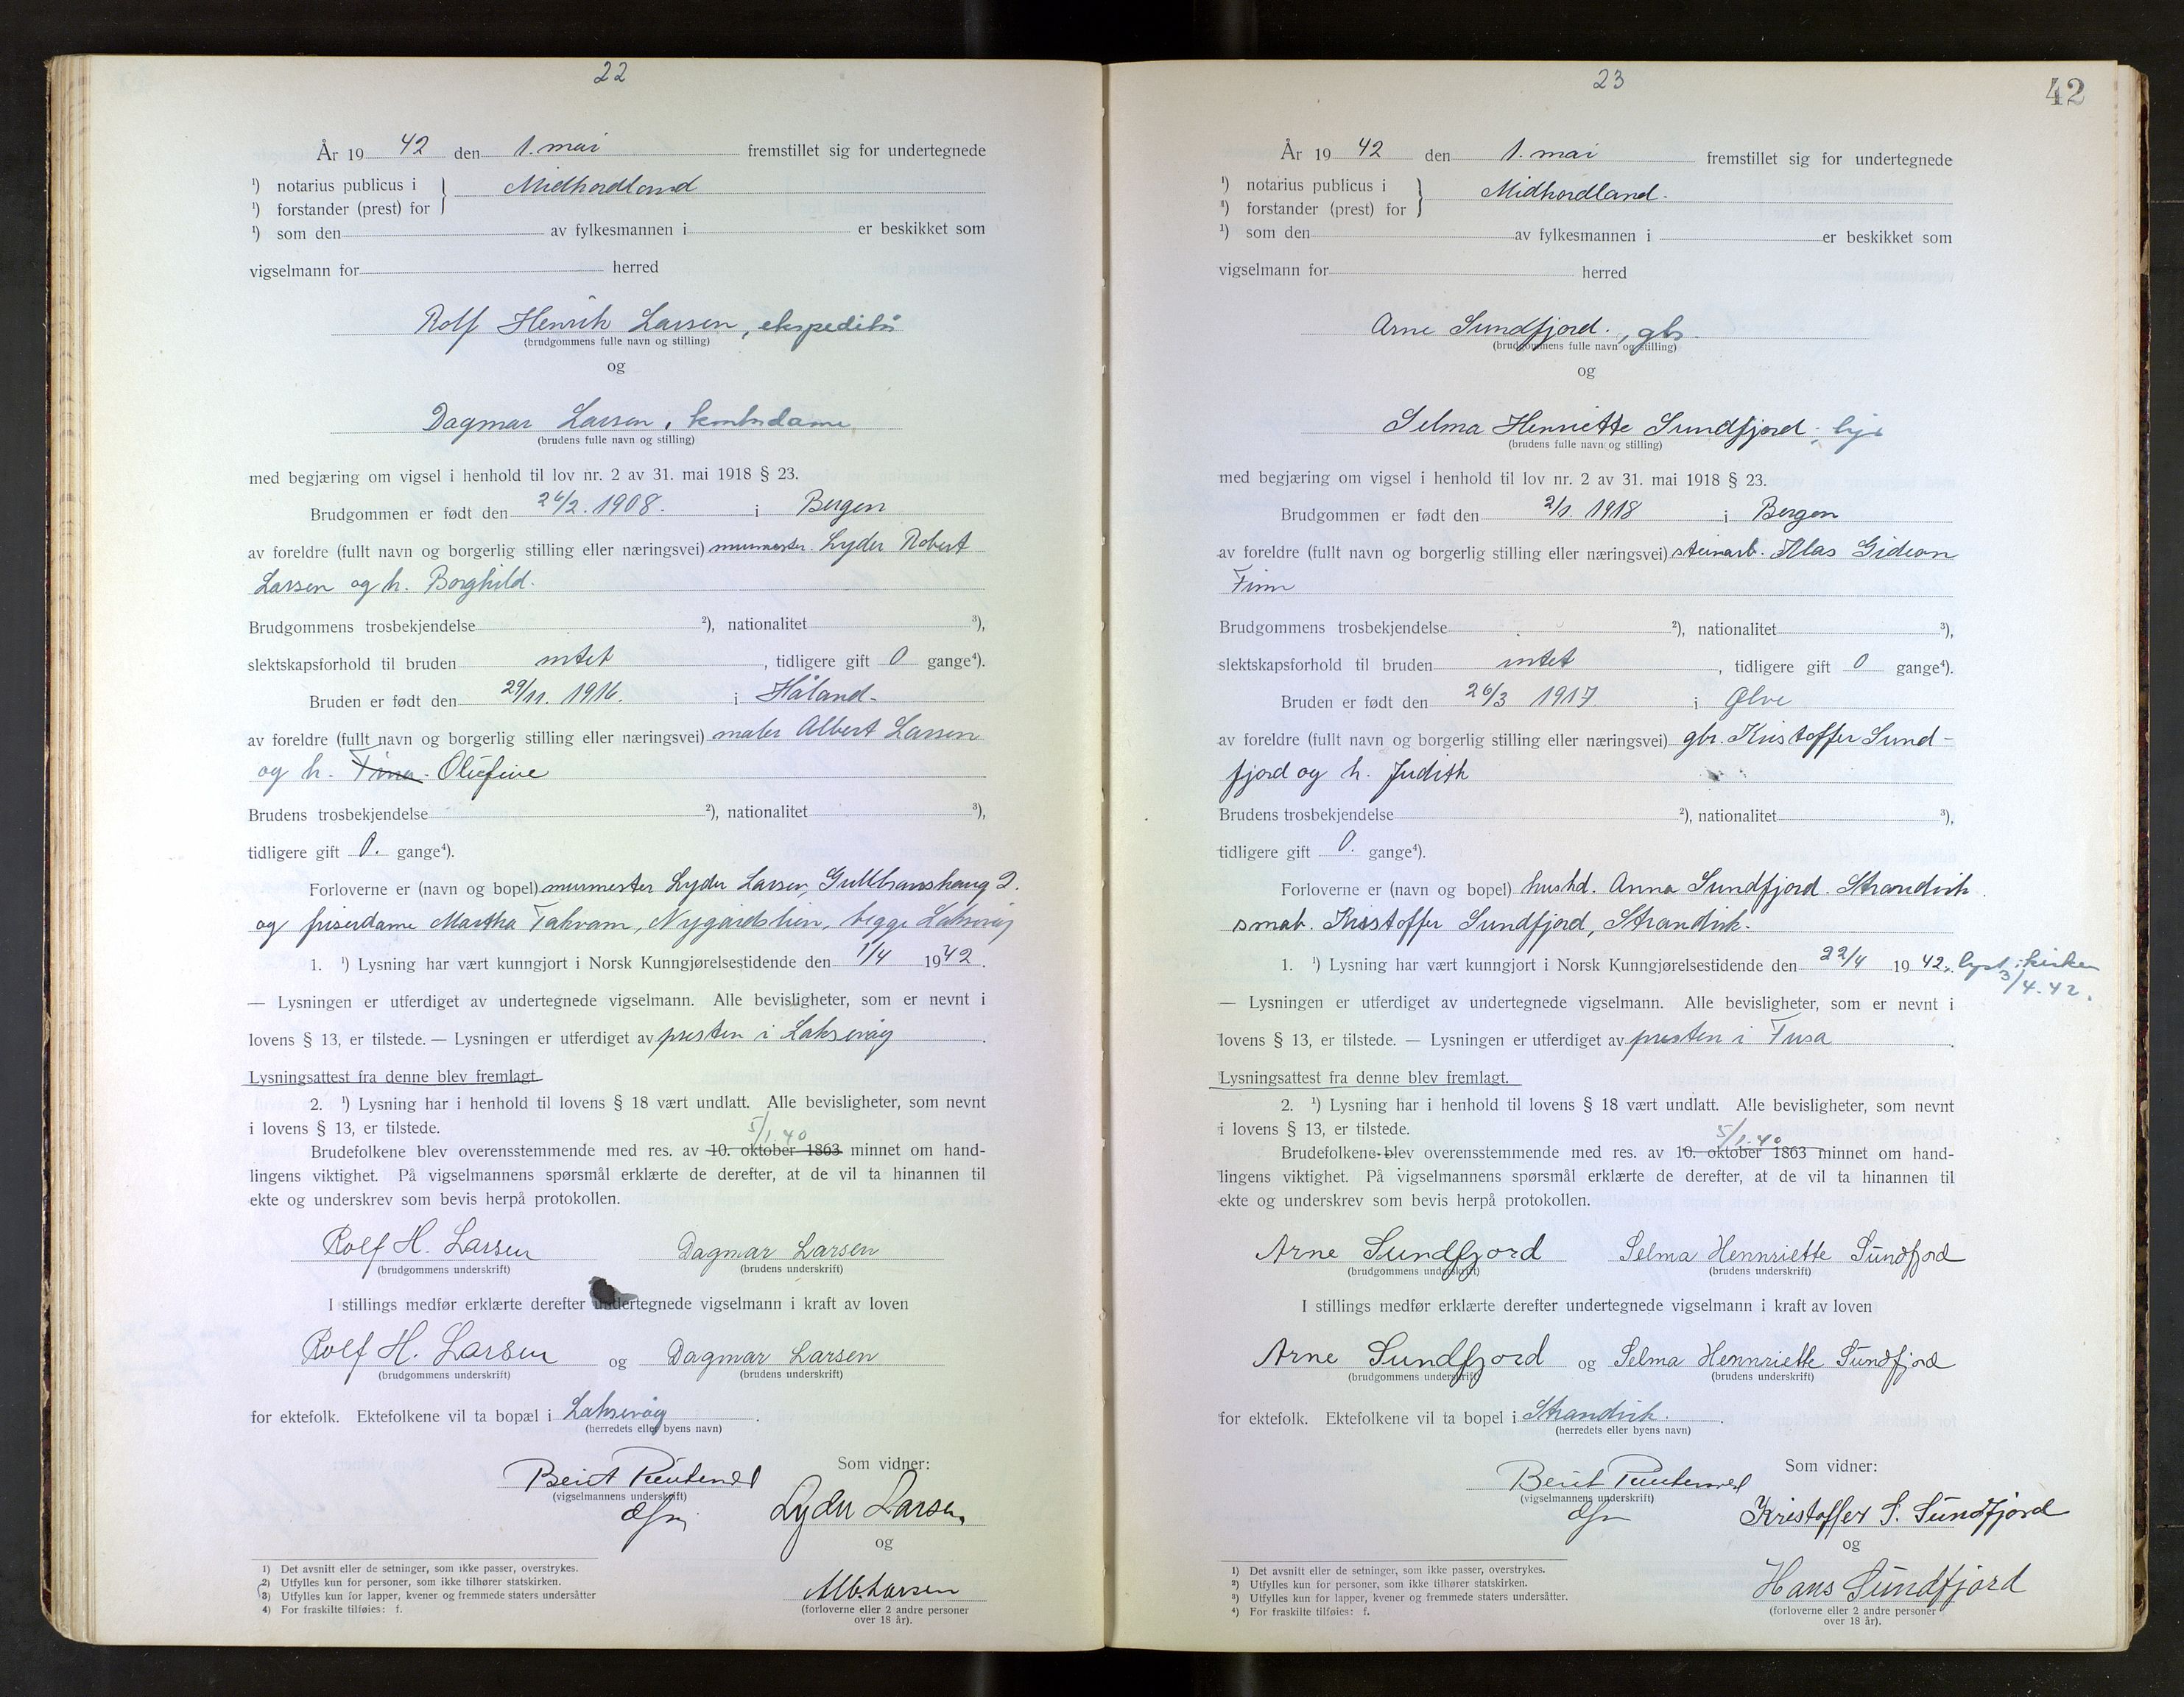 22
År 19 42 den 1. mai fremstillet sig for undertegnede
¹) notarius publicus i } Midhordland
¹) forstander (prest) for
¹) som den av fylkesmannen i er beskikket som
vigselmann for herred
Rolf Henrik Larsen, ekspeditør
(brudgommens fulle navn og stilling)
og
Dagmar Larsen, kontordame
(brudens fulle navn og stilling)
med begjæring om vigsel i henhold til lov nr. 2 av 31. mai 1918 § 23.
Brudgommen er født den 26/2. 1908. i Bergen
av foreldre (fullt navn og borgerlig stilling eller næringsvei) murmester Lyder Robert
Larsen og h. Borghild.
Brudgommens trosbekjendelse ²), nationalitet ³),
slektskapsforhold til bruden intet, tidligere gift 0 gange⁴).
Bruden er født den 29/11. 1916. i Håland
av foreldre (fullt navn og borgerlig stilling eller næringsvei) maler Albert Larsen
og h. Tina. Olufine
Brudens trosbekjendelse ²), nationalitet ³),
tidligere gift 0. gange⁴).
Forloverne er (navn og bopel) murmester Lyder Larsen, Gulbranshaug 2.
og friserdame Martha Takvam, Nygårdslien, begge Laksevåg
1. ¹) Lysning har vært kunngjort i Norsk Kunngjørelsestidende den 1/4 1942.
— Lysningen er utferdiget av undertegnede vigselmann. Alle bevisligheter, som er nevnt i
lovens § 13, er tilstede. — Lysningen er utferdiget av presten i Laksevåg.
Lysningsattest fra denne blev fremlagt.
2. ¹) Lysning har i henhold til lovens § 18 vært undlatt. Alle bevisligheter, som nevnt
i lovens § 13, er tilstede.
5/1.40
Brudefolkene blev overensstemmende med res. av 10. oktober 1863 minnet om hand-
lingens viktighet. På vigselmannens spørsmål erklærte de derefter, at de vil ta hinannen til
ekte og underskrev som bevis herpå protokollen.
Rolf H. Larsen Dagmar Larsen
(brudgommens underskrift) (brudens underskrift)
I stillings medfør erklærte derefter undertegnede vigselmann i kraft av loven
Rolf H. Larsen og Dagmar Larsen
(brudgommens underskrift) (brudens underskrift)
for ektefolk. Ektefolkene vil ta bopæl i Laksevåg.
(herredets eller byens navn)
Som vidner:
Berit
(vigselmannens underskrift)
Lyder Larsen
og
Alb. Larsen
(forloverne eller 2 andre personer
over 18 år).
1) Det avsnitt eller de setninger, som ikke passer, overstrykes.
2) Utfylles kun for personer, som ikke tilhører statskirken.
3) Utfylles kun for lapper, kvener og fremmede staters undersåtter
4) For fraskilte tilføies: f.
23
42
År 19 42 den 1. mai fremstillet sig for undertegnede
¹) notarius publicus i } Midhordland.
¹) forstander (prest) for
¹) som den av fylkesmannen i er beskikket som
vigselmann for herred
Arne Sundfjord., gbr.
(brudgommens fulle navn og stilling)
og
Selma Henriette Sundfjord
(brudens fulle navn og stilling)
med begjæring om vigsel i henhold til lov nr. 2 av 31. mai 1918 § 23.
Brudgommen er født den 2/1. 1918 i Bergen
av foreldre (fullt navn og borgerlig stilling eller næringsvei) steinarb. Klas Gideon
Finn
Brudgommens trosbekjendelse ²), nationalitet ³),
slektskapsforhold til bruden intet, tidligere gift 0 gange⁴).
Bruden er født den 26/3 1917 i Ølve
av foreldre (fullt navn og borgerlig stilling eller næringsvei) gbr. Kristoffer Sund-
fjord og h. Judith
Brudens trosbekjendelse ²), nationalitet ³),
tidligere gift 0. gange⁴).
Forloverne er (navn og bopel) hushd. Anna Sundfjord. Strandvik.
småb. Kristoffer Sundfjord, Strandvik.
1. ¹) Lysning har vært kunngjort i Norsk Kunngjørelsestidende den 22/4 19 42., lyst i kirken
3/4.42.
— Lysningen er utferdiget av undertegnede vigselmann. Alle bevisligheter, som er nevnt i
lovens § 13, er tilstede. — Lysningen er utferdiget av presten i Fusa.
Lysningsattest fra denne blev fremlagt.
2. ¹) Lysning har i henhold til lovens § 18 vært undlatt. Alle bevisligheter, som nevnt
i lovens § 13, er tilstede.
5/1.40
Brudefolkene blev overensstemmende med res. av 10. oktober 1863 minnet om hand-
lingens viktighet. På vigselmannens spørsmål erklærte de derefter, at de vil ta hinannen til
ekte og underskrev som bevis herpå protokollen.
Arne Sundfjord Selma Hennriette Sundfjord
(brudgommens underskrift) (brudens underskrift)
I stillings medfør erklærte derefter undertegnede vigselmann i kraft av loven
Arne Sundfjord og Selma Hennriette Sundfjord
(brudgommens underskrift) (brudens underskrift)
for ektefolk. Ektefolkene vil ta bopel i Strandvik.
(herredets eller byens navn)
Som vidner:
Berit
(vigselmannens underskrift)
Kristoffer S. Sundfjord
og
Hans Sundfjord
(forloverne eller 2 andre personer
over 18 år).
¹) Det avsnitt eller de setninger, som ikke passer, overstrykes.
²) Utfylles kun for personer, som ikke tilhører statskirken.
³) Utfylles kun for lapper, kvener og fremmede staters undersåtter.
⁴) For fraskilte tilføies: f.